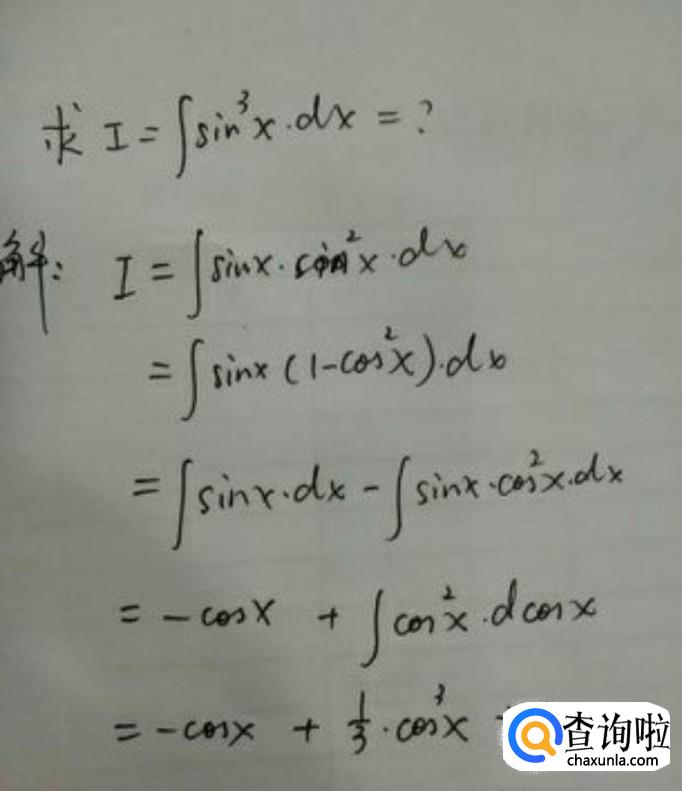 求 I = ∫sin³x·dx = ?
解: I = ∫sinx·sin²x·dx
= ∫sinx(1-cos²x)·dx
= ∫sinx·dx - ∫sinx·cos²x·dx
= -cosx + ∫cos²x·dcosx
= -cosx + 1/3·cos³x
查询啦
chaxunla.com